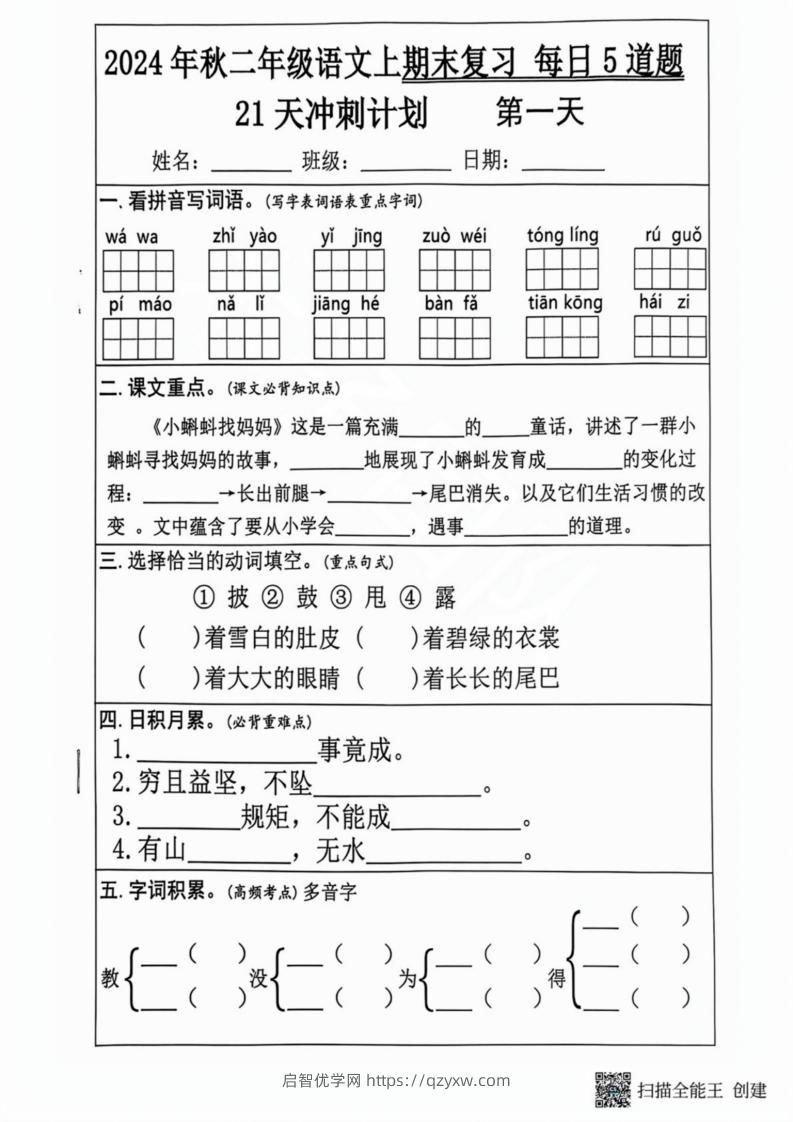 2024年秋二年级语文上期末复习 每日5道题
21天冲刺计划 第一天
姓名：______ 班级：______ 日期：______
一.看拼音写词语。(写字表词语表重点字词)
wá wa zhǐ yào yǐ jīng zuò wéi tóng líng rú guǒ
pí máo nǎ lǐ jiāng hé bàn fǎ tiān kōng hái zi
二.课文重点。(课文必背知识点)
《小蝌蚪找妈妈》这是一篇充满______的____童话，讲述了一群小
蝌蚪寻找妈妈的故事，______地展现了小蝌蚪发育成______的变化过
程：______→长出前腿→______→尾巴消失。以及它们生活习惯的改
变 。文中蕴含了要从小学会______，遇事________的道理。
三.选择恰当的动词填空。(重点句式)
① 披 ② 鼓 ③ 甩 ④ 露
(  )着雪白的肚皮 (  )着碧绿的衣裳
(  )着大大的眼睛 (  )着长长的尾巴
四.日积月累。(必背重难点)
1.____________事竟成。
2.穷且益坚，不坠____________。
3.________规矩，不能成__________。
4.有山________，无水____________。
五.字词积累。(高频考点)多音字
___(  )
___(  ) ___(  ) ___(  ) ___(  )
教 没 为 得
___(  ) ___(  ) ___(  ) ___(  )
启智优学网 https://qzyxw.com
扫描全能王 创建